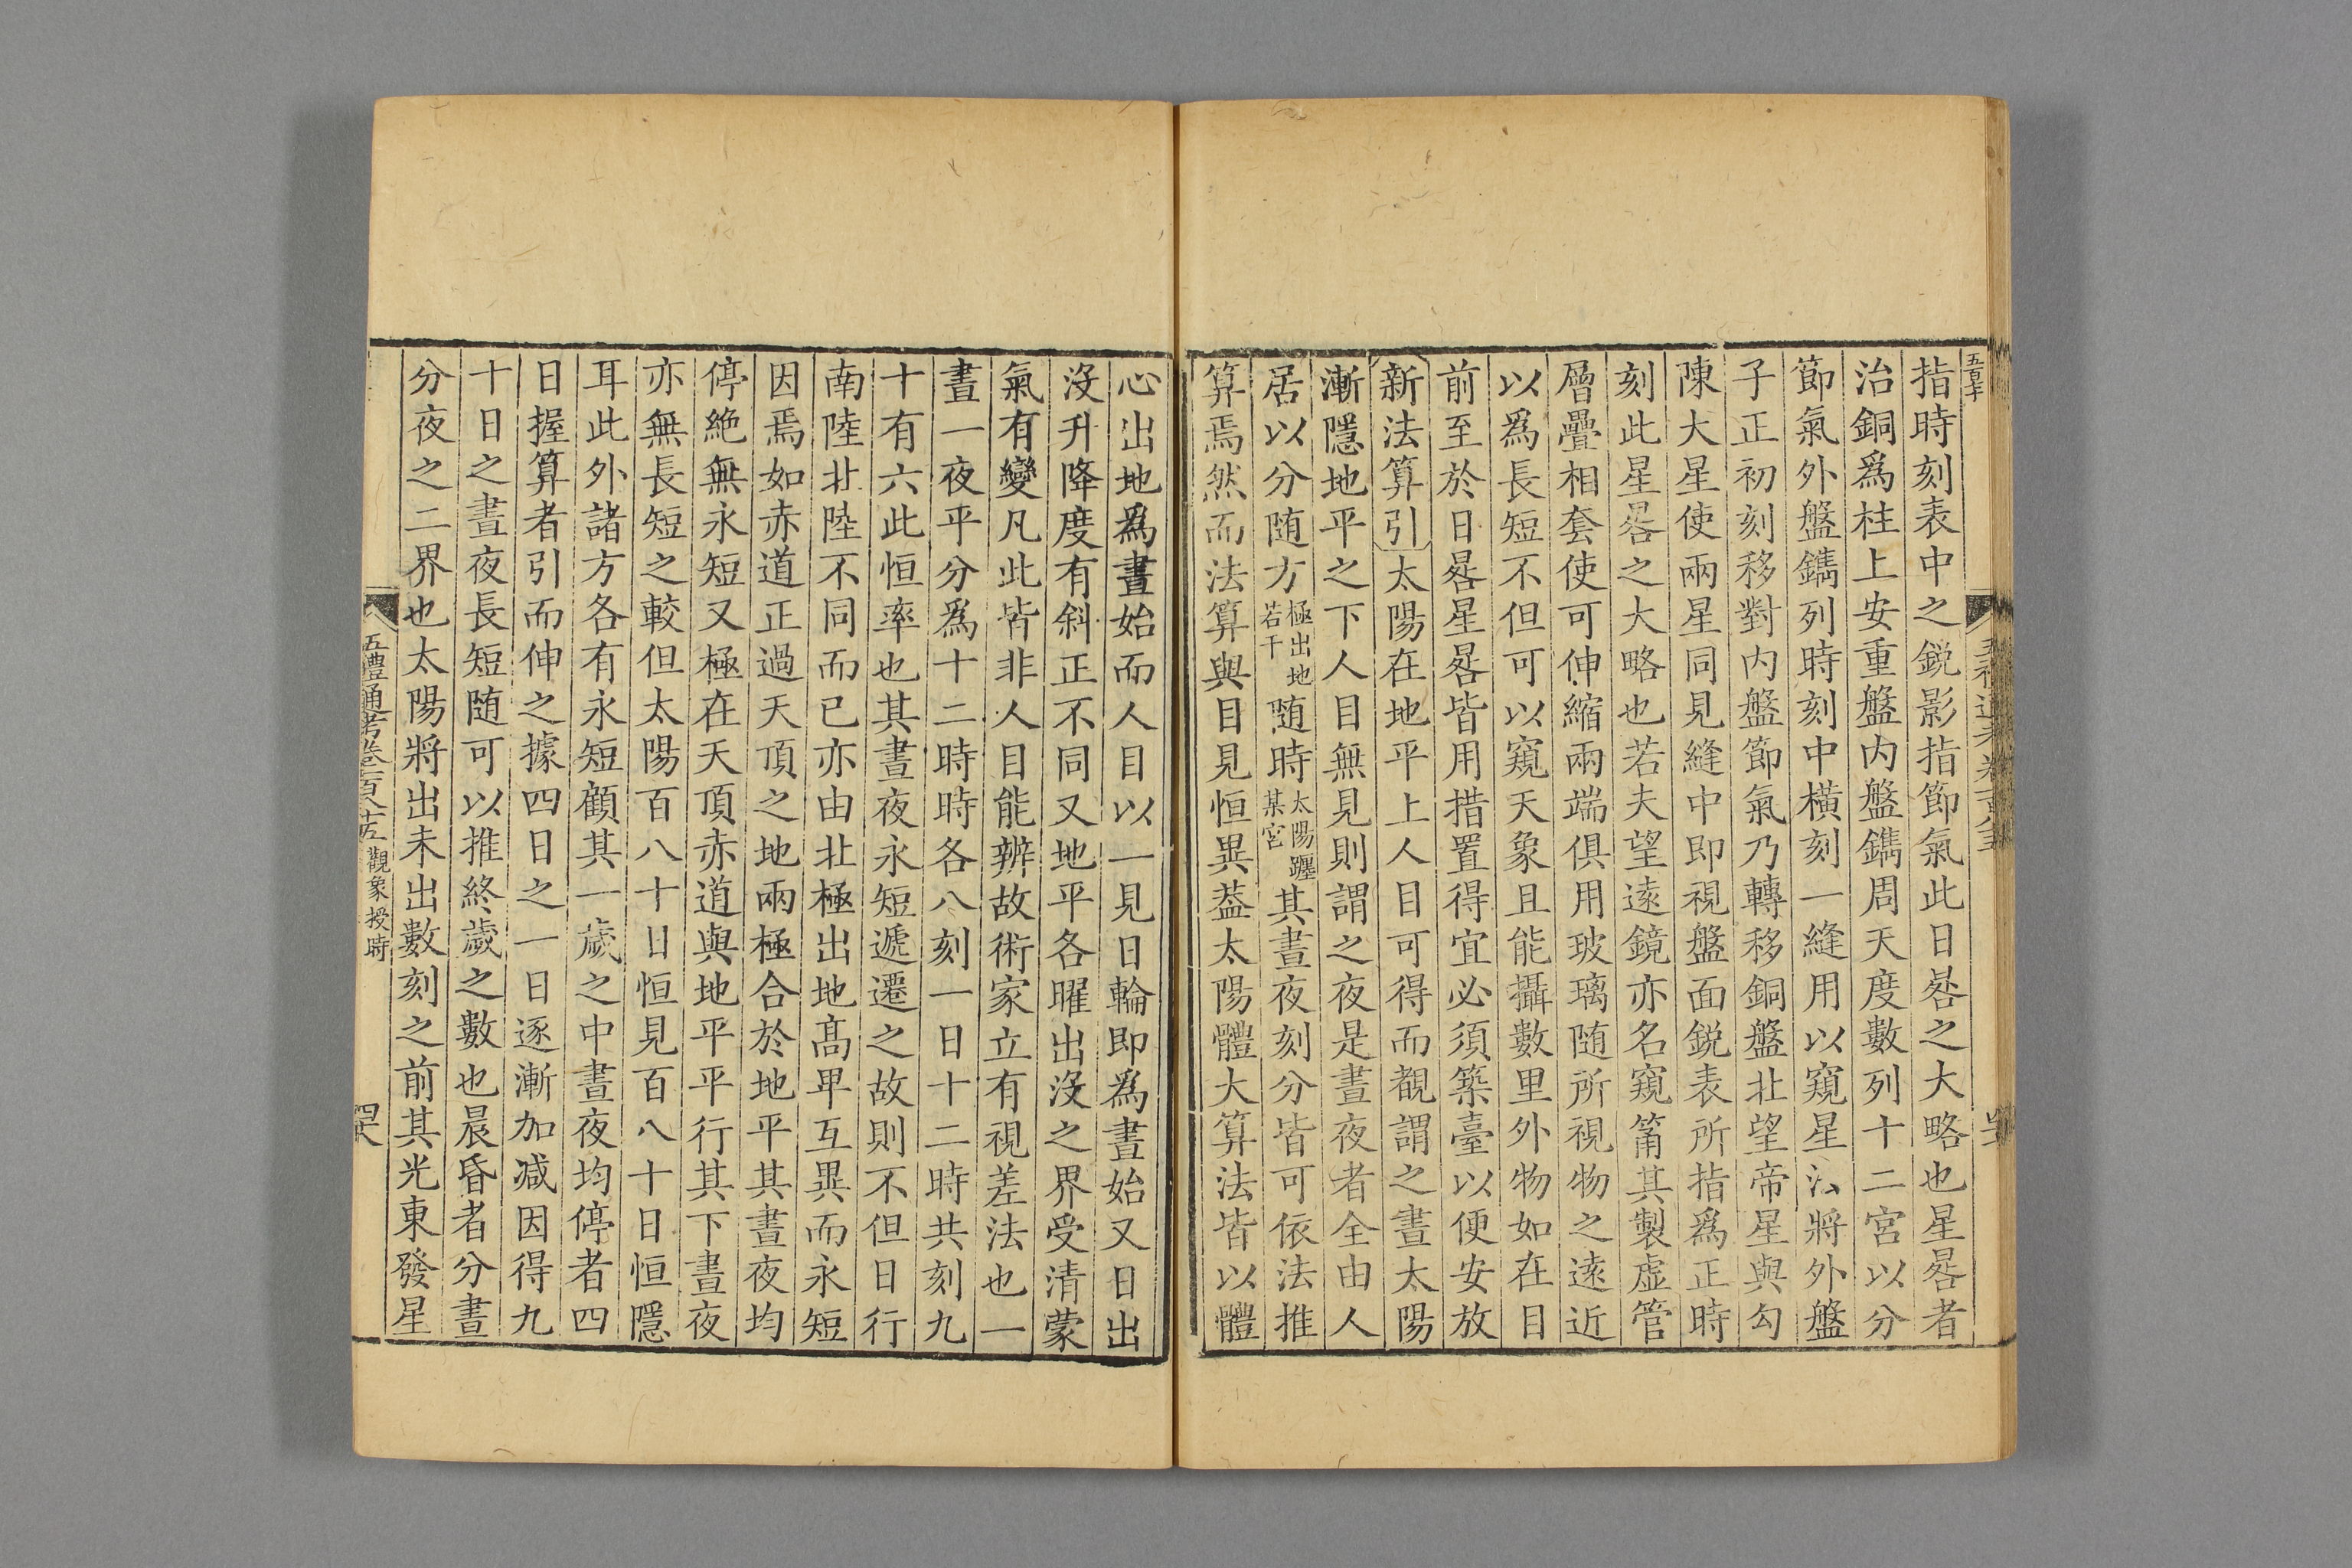 指時刻表中之鋭影指節氣此日晷之大略也星晷者
治銅爲柱上安重盤内盤鐫周天度數列十二宮以分
節氣外盤鐫列時刻中横刻一縫用以窺星法將外盤
子正初刻移對内盤節氣乃轉移銅盤北望帝星與勾
陳大星使兩星同見縫中即視盤面鋭表所指爲正時
刻此星晷之大略也若夫望逺鏡亦名窺筩其製虚管
層疊相套使可伸縮兩端俱用玻璃随所視物之逺近
以爲長短不但可以窺天象且能攝數里外物如在目
前至於日晷星晷皆用措置得宜必須築臺以便安放
新法算引太陽在地平上人目可得而覩謂之晝太陽
漸隱地平之下人目無見則謂之夜是晝夜者全由人
居以分随方極出地若干随時太陽躔某宮其晝夜刻分皆可依法推
算焉然而法算與目見恒異葢太陽體大算法皆以體
心出地爲晝始而人目以一見日輪即爲晝始又日出
沒升降度有斜正不同又地平各曜出沒之界受清蒙
氣有變凡此皆非人目能辨故術家立有視差法也一
晝一夜平分爲十二時時各八刻一日十二時共刻九
十有六此恒率也其晝夜永短遞遷之故則不但日行
南陸北陸不同而已亦由北極出地髙卑互異而永短
因焉如赤道正過天頂之地兩極合於地平其晝夜均
停絶無永短又極在天頂赤道與地平平行其下晝夜
亦無長短之較但太陽百八十日恒見百八十日恒隱
耳此外諸方各有永短顧其一歲之中晝夜均停者四
日握算者引而伸之據四日之一日逐漸加减因得九
十日之晝夜長短随可以推終歲之數也晨昏者分晝
分夜之二界也太陽將出未出數刻之前其光東發星
五禮通考卷一百八十五 觀象授時